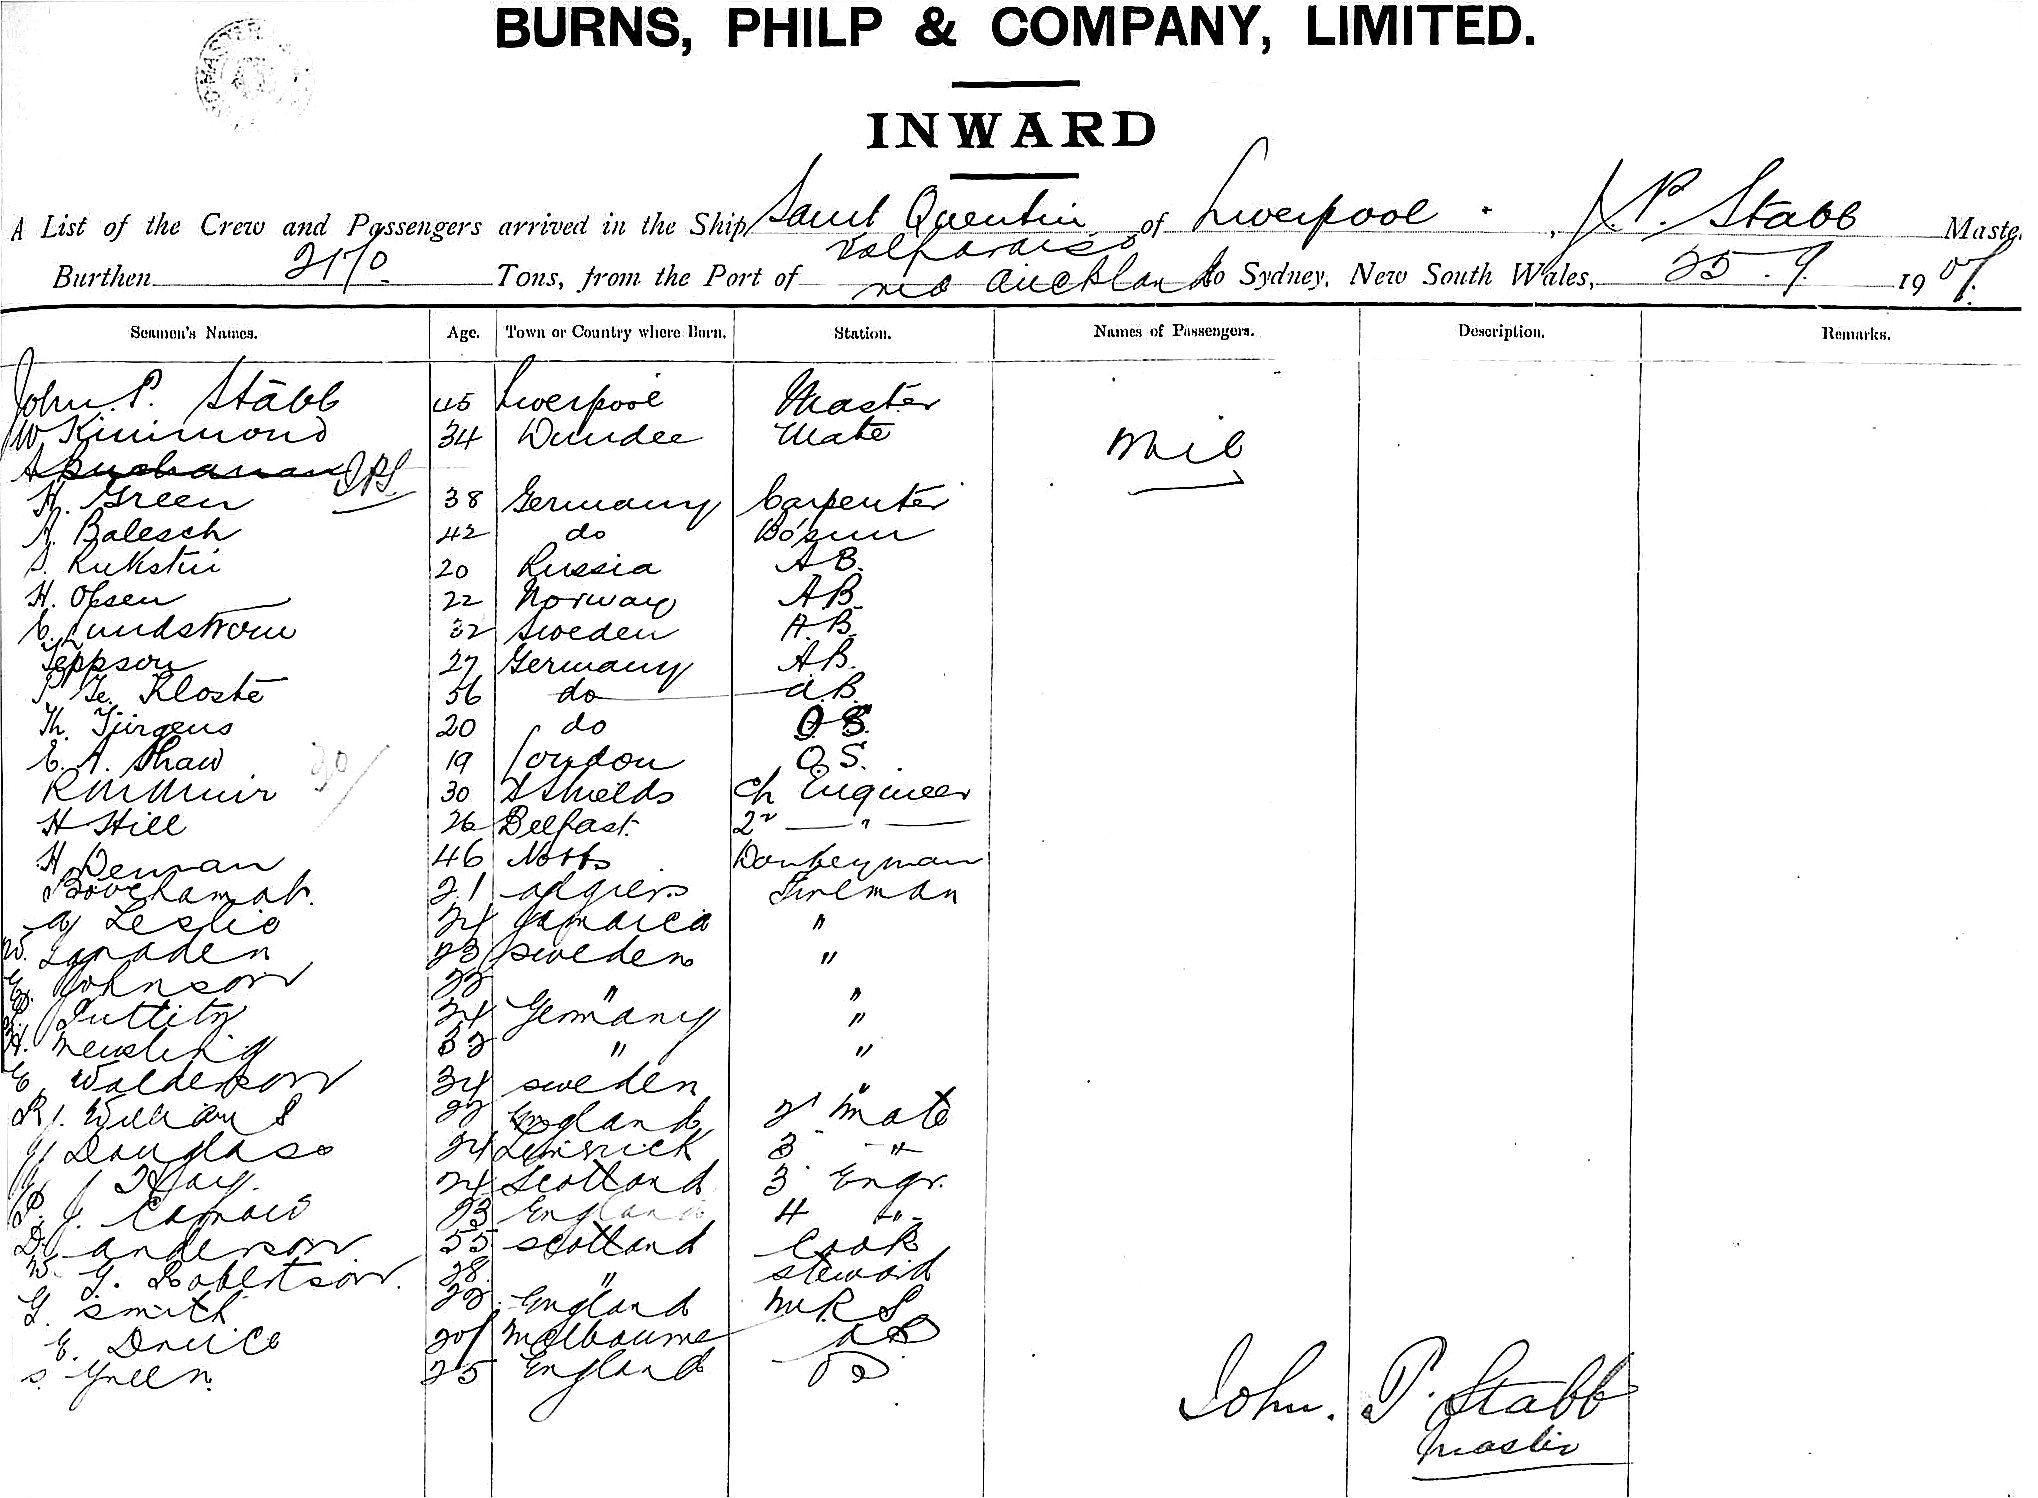 BURNS, PHILP & COMPANY, LIMITED.
INWARD
A List of the Crew and Passengers arrived in the Ship Saint Quentin of Liverpool. J. P. Stabb Master
Burthen 2170 Tons, from the Port of Valparaiso via Auckland to Sydney, New South Wales, 25.9. 1907.
Seamen's Names. Age. Town or Country where Born. Station. Names of Passengers. Description. Remarks.
John. P. Stabb 45 Liverpool Master
W. Kinimond 34 Dundee Mate Nil
A Buchanan JPS
H. Green 38 Germany Carpenter
A. Balesch 42 do Bo'sun
S. Rukstin 20 Russia AB.
H. Opsen 22 Norway AB.
C. Lundstrom 32 Sweden A.B.
Jeppson 27 Germany AB.
P. Ge. Kloste 56 do a.B.
Th. Jürgens 20 do O.S.
E. A. Shaw 19 London O.S.
R M Muir 30 S Shields Ch Engineer
H Hill 26 Belfast. 2 "
H. Denman 46 Notts Donkeyman
21 Algiers Fireman
A Leslie 24 Jamaica "
W. 23 Sweden "
E. Johnson 22 " "
24 Germany "
H. 32 " "
E Walderson 34 Sweden "
R J. Williams 22 England 2 Mate
J Douglass 24 Limerick 3 "
J Hay. 24 Scotland 3 Engr.
P. J. 23 England 4 "
D. Anderson 55 Scotland Cook
W. G. Robertson. 28. " Steward
G. Smith 22 England M R S
E. Druice 20 Melbourne
S. Green. 25 England
John. P. Stabb
Master